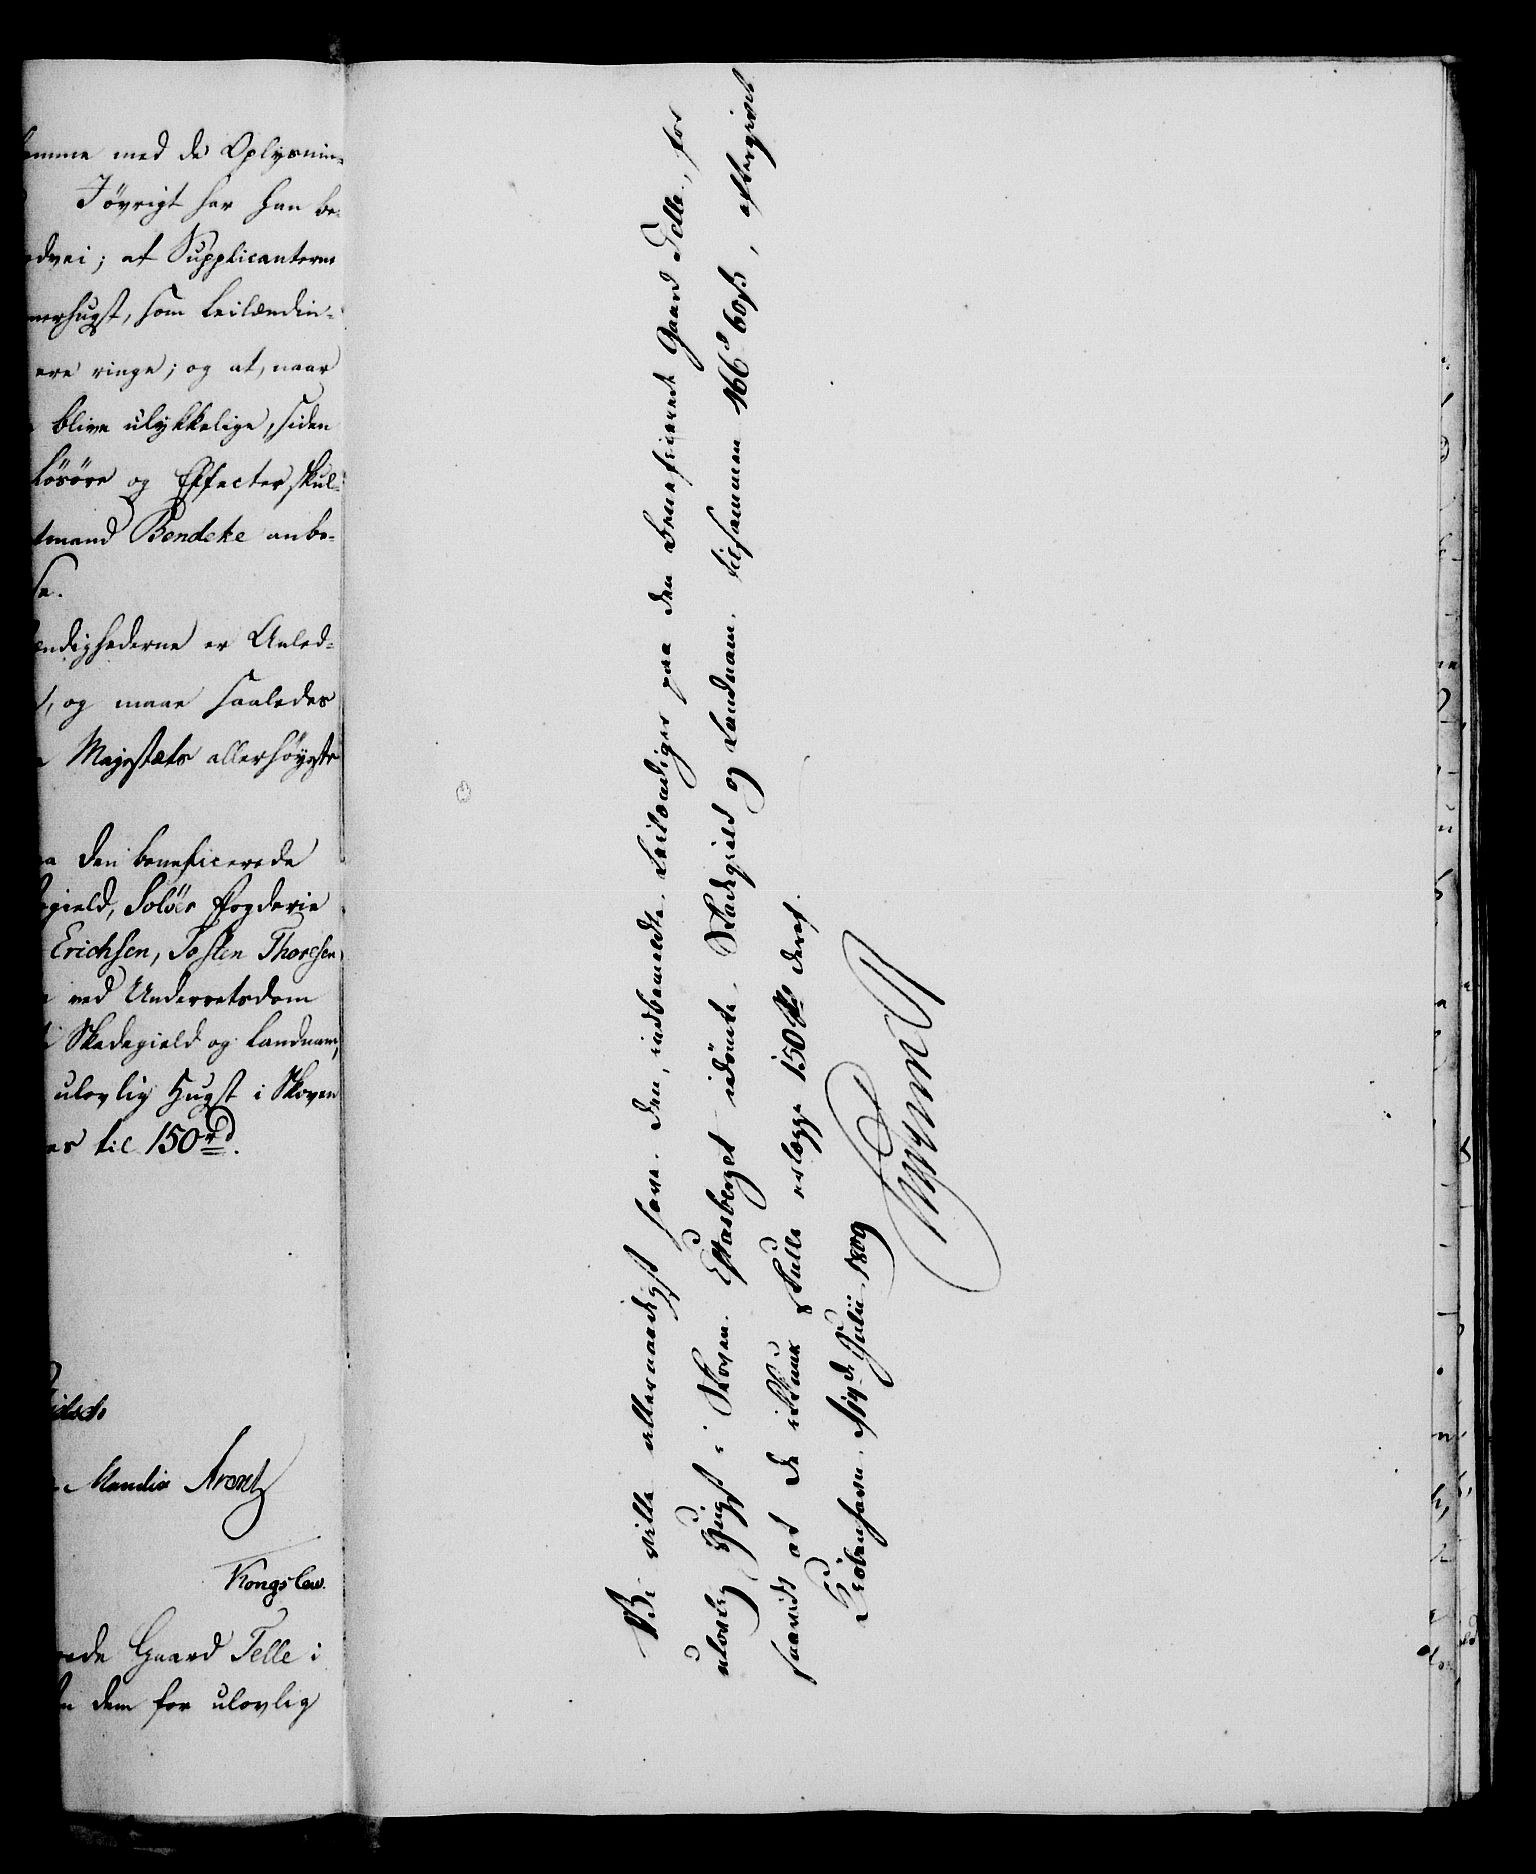 omme med de Oplysnin-
Iøvrigt har han be-
edvei; at Supplicanterne
merhugst, som Leilændin-
ere ringe; og at, naar
blive ulykkelige, siden
Løsøre og Effecter skul-
tmand Bendeke anbe-
se.
ændighederne er Anled-
og maae saaledes
Majestæts allerhøyeste
den beneficerede
gield, Soløer Fogderie
Erichsen, Tosten Thoresen,
ved Underretsdom
Skadegield og Landnam,
ulovlig Hugst i Skoven
es til 150 rd.
Mandix Arentz
Kongslew.
ede Gaard Telle i
dem for ulovlig
Vi ville allernaadigst have den, indbemeldte Leilændinger paa den beneficerede Gaard Telle, for
ulovlig Hugst i Skoven Estasberget idömte Skadegield og Landnam, tilsammen 166 d 60 ß, eftergivet
saavidt at de ikkun skulle erlægge 150 rd deraf.
Kiøbenhavn, d 19 de Julii 1809